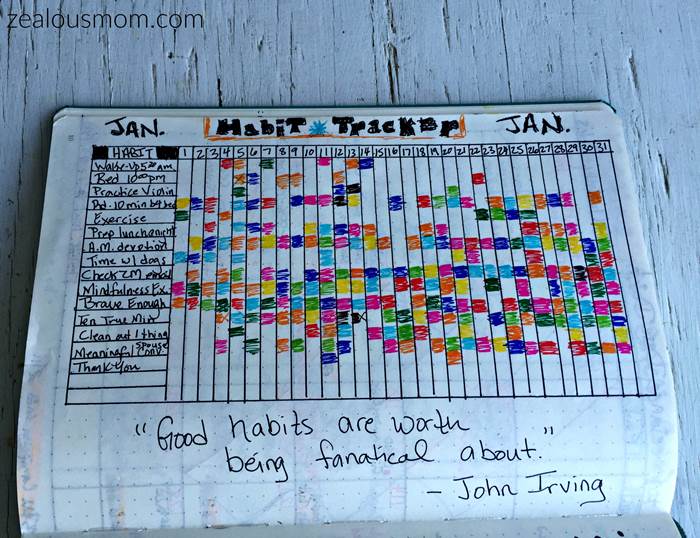 zealousmom.com
JAN. HabiT TracKer JAN.
HABIT 1 2 3 4 5 6 7 8 9 10 11 12 13 14 15 16 17 18 19 20 21 22 23 24 25 26 27 28 29 30 31
Wake-Up 5:30 am
Bed 10:00 pm
Practice Violin
Pd. 10 min b4 bed
Exercise
Prep lunch@night
A.M. devotion
Time w/ dogs
Check ZM email
Mindfulness Ex.
Brave Enough
Ten True Min
Clean out 1 thing
Meaningful Spouse Conv
Thank-You
"Good habits are worth
being fanatical about."
- John Irving